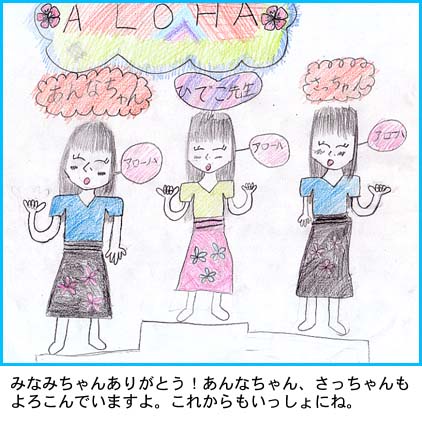 ALOHA
あんなちゃん
ひでこ先生
さっちゃん
アローハ
アローハ
アローハ
みなみちゃんありがとう！あんなちゃん、さっちゃんも
よろこんでいますよ。これからもいっしょにね。